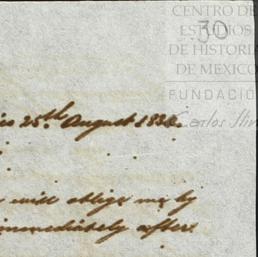 CENTRO DE
ESTUDIOS
30
DE HISTORIA
DE MEXICO
FUNDACIÓ
Carlos Slim
co 25th August 183
will oblige me by
immediately after